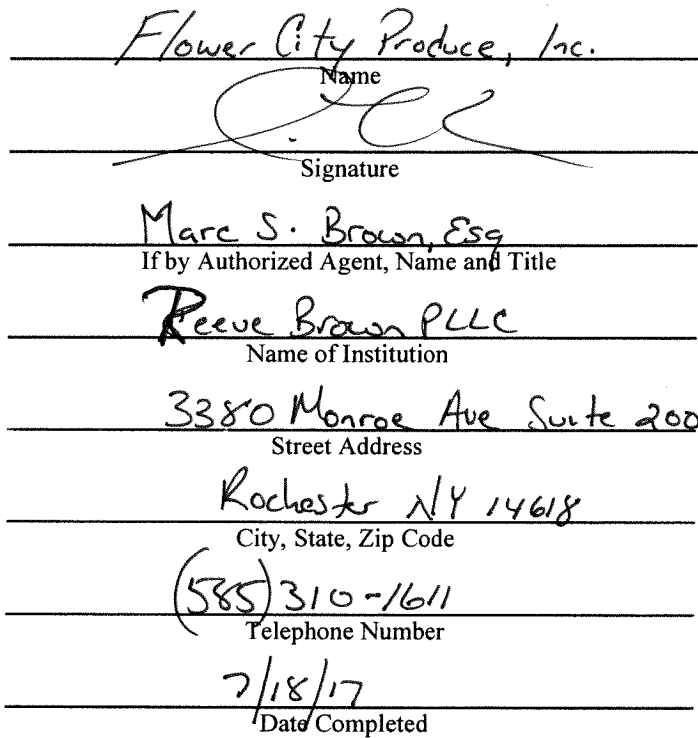 Flower City Produce, Inc.
Name
Signature
Marc S. Brown, Esq
If by Authorized Agent, Name and Title
Reeve Brown PLLC
Name of Institution
3380 Monroe Ave Suite 200
Street Address
Rochester NY 14618
City, State, Zip Code
(585) 310-1611
Telephone Number
7/18/17
Date Completed